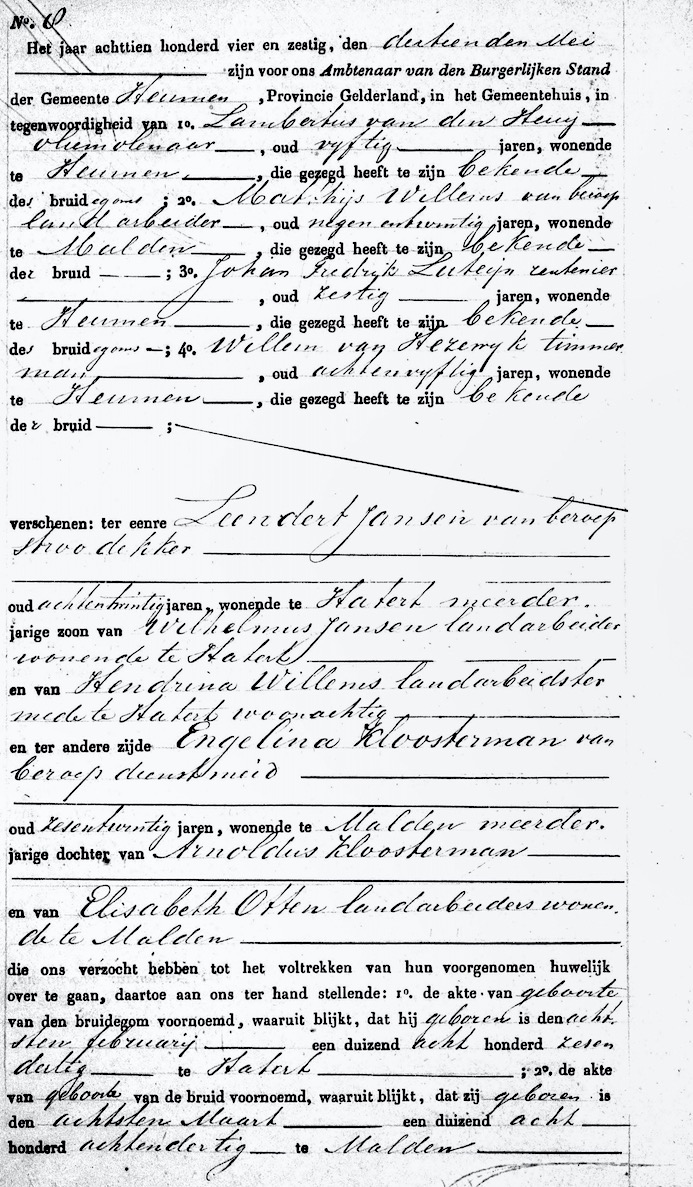 No. 8
Het jaar achttien honderd vier en zestig, den dertienden Mei
zijn voor ons Ambtenaar van den Burgerlijken Stand
der Gemeente Heumen, Provincie Gelderland, in het Gemeentehuis, in
tegenwoordigheid van 1o. Lambertus van den Heuy
oliemolenaar, oud vyftig jaren, wonende
te Heumen, die gezegd heeft te zijn bekende
des bruidegoms; 2o. Mathijs Willems van beroep
landarbeider, oud negenentwintig jaren, wonende
te Malden, die gezegd heeft te zijn bekende
der bruid; 3o. Johan Fredryk Luteyn rentenier
, oud zestig jaren, wonende
te Heumen, die gezegd heeft te zijn bekende
des bruidegoms; 4o. Willem van Hezewyk timmer
man, oud achtenvyftig jaren, wonende
te Heumen, die gezegd heeft te zijn bekende
der bruid;
verschenen: ter eenre Leendert Jansen van beroep
stroodekker
oud achtentwintig jaren, wonende te Hatert meerder.
jarige zoon van Wilhelmus Jansen landarbeider
wonende te Hatert
en van Hendrina Willems landarbeidster
mede te Hatert woonachtig
en ter andere zijde Engelina Kloosterman van
beroep dienstmeid
oud zesentwintig jaren, wonende te Malden meerder.
jarige dochter van Arnoldus Kloosterman
en van Elisabeth Otten landarbeiders wonen.
de te Malden
die ons verzocht hebben tot het voltrekken van hun voorgenomen huwelijk
over te gaan, daartoe aan ons ter hand stellende: 1o. de akte van geboorte
van den bruidegom voornoemd, waaruit blijkt, dat hij geboren is den acht
sten februarij een duizend acht honderd zesen
dertig te Hatert; 2o. de akte
van geboorte van de bruid voornoemd, waaruit blijkt, dat zij geboren is
den achtsten Maart een duizend acht
honderd achtendertig te Malden